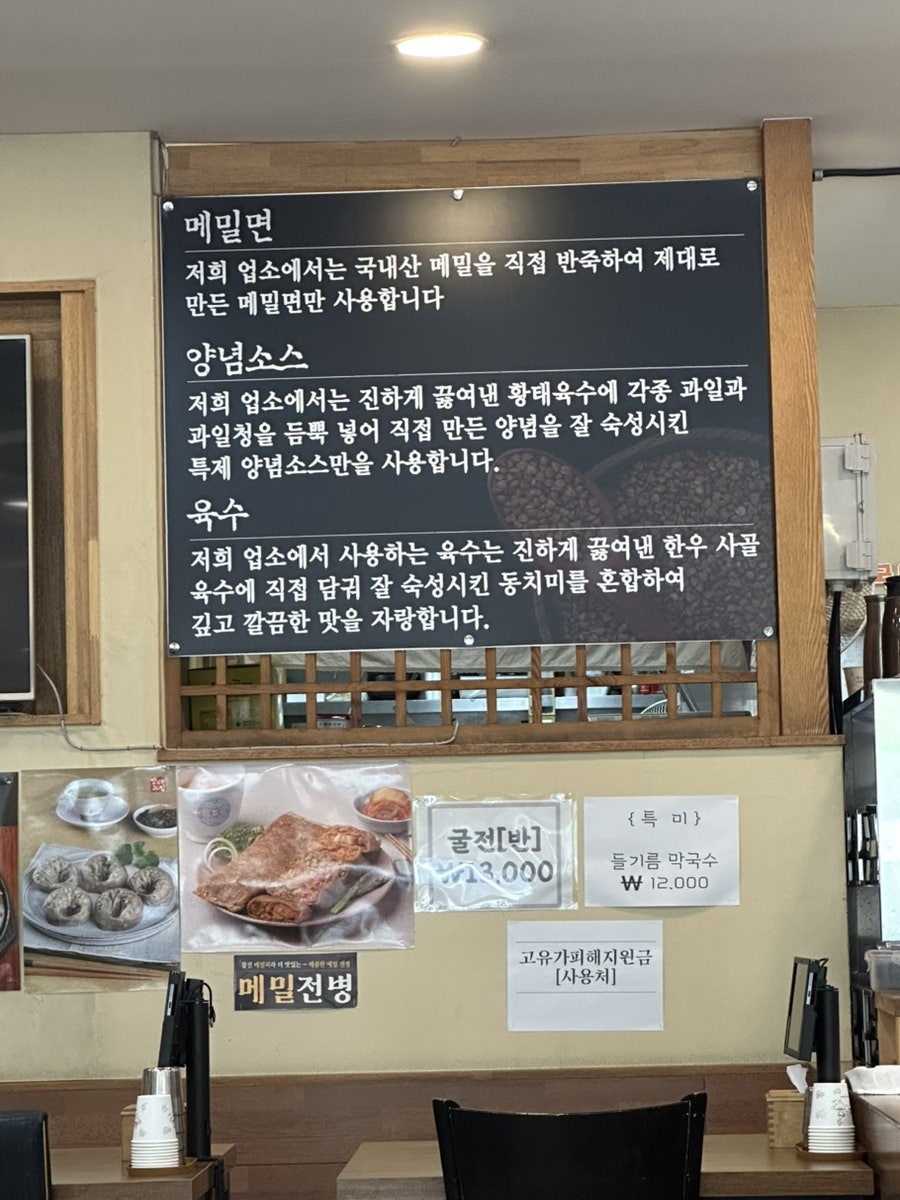 메밀면
저희 업소에서는 국내산 메밀을 직접 반죽하여 제대로
만든 메밀면만 사용합니다
양념소스
저희 업소에서는 진하게 끓여낸 황태육수에 각종 과일과
과일청을 듬뿍 넣어 직접 만든 양념을 잘 숙성시킨
특제 양념소스만을 사용합니다.
육수
저희 업소에서 사용하는 육수는 진하게 끓여낸 한우 사골
육수에 직접 담궈 잘 숙성시킨 동치미를 혼합하여
깊고 깔끔한 맛을 자랑합니다.
굴전[반]
₩13,000
{ 특 미 }
들기름 막국수
₩ 12.000
고유가피해지원금
[사용처]
메밀전병